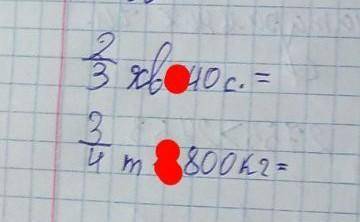 2/3 хв 40 с. =
3/4 т 800 кг =